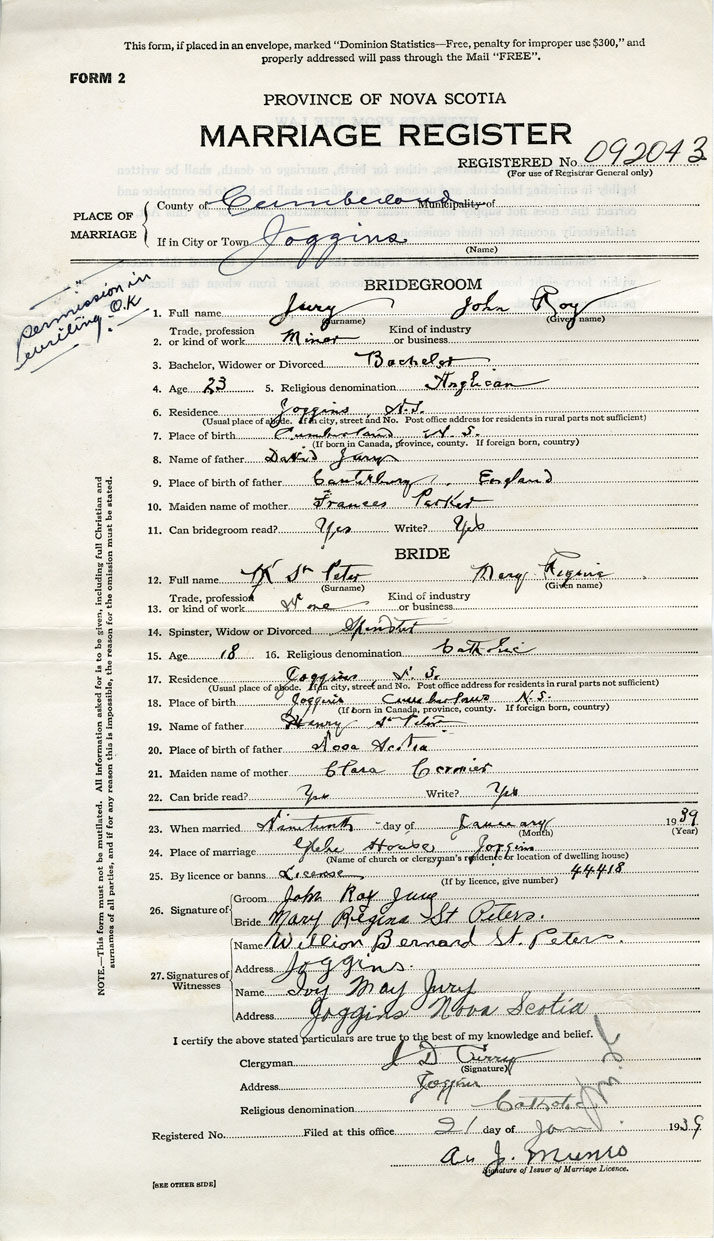 This form, if placed in an envelope, marked "Dominion Statistics—Free, penalty for improper use $300," and
properly addressed will pass through the Mail "FREE".
FORM 2
PROVINCE OF NOVA SCOTIA
MARRIAGE REGISTER
REGISTERED No. 092043
(For use of Registrar General only)
PLACE OF MARRIAGE
County of Cumberland Municipality of
If in City or Town Joggins
(Name)
permission in
writing O.K
BRIDEGROOM
1. Full name Jury John Roy
(Surname) (Given name)
2. Trade, profession or kind of work Miner Kind of industry or business
3. Bachelor, Widower or Divorced Bachelor
4. Age 23 5. Religious denomination Anglican
6. Residence Joggins, N.S.
(Usual place of abode. If in city, street and No. Post office address for residents in rural parts not sufficient)
7. Place of birth Cumberland N.S.
(If born in Canada, province, county. If foreign born, country)
8. Name of father David Jury
9. Place of birth of father Canterbury, England
10. Maiden name of mother Frances Parker
11. Can bridegroom read? Yes Write? Yes
BRIDE
12. Full name St Peter Mary Regina
(Surname) (Given name)
13. Trade, profession or kind of work None Kind of industry or business
14. Spinster, Widow or Divorced Spinster
15. Age 18 16. Religious denomination Catholic
17. Residence Joggins N.S.
(Usual place of abode. If in city, street and No. Post office address for residents in rural parts not sufficient)
18. Place of birth Joggins Cumberland N.S.
(If born in Canada, province, county. If foreign born, country)
19. Name of father Henry St Peter
20. Place of birth of father Nova Scotia
21. Maiden name of mother Clara Cormier
22. Can bride read? Yes Write? Yes
23. When married Nineteenth day of January 1939
(Month) (Year)
24. Place of marriage Glebe House, Joggins
(Name of church or clergyman's residence or location of dwelling house)
25. By licence or banns License 44418
(If by licence, give number)
26. Signature of
Groom John Roy Jury
Bride Mary Regina St Peters.
27. Signatures of Witnesses
Name Willion Bernard St. Peters.
Address Joggins.
Name Ivy May Jury
Address Joggins Nova Scotia
I certify the above stated particulars are true to the best of my knowledge and belief.
Clergyman J D Curry
(Signature)
Address Joggins
Religious denomination Catholic
Registered No. Filed at this office 21 day of Jan 1939
J. Munro
Signature of Issuer of Marriage Licence.
[SEE OTHER SIDE]
NOTE.—This form must not be mutilated. All Information asked for is to be given, including full Christian and
surnames of all parties, and if for any reason this is impossible, the reason for the omission must be stated.